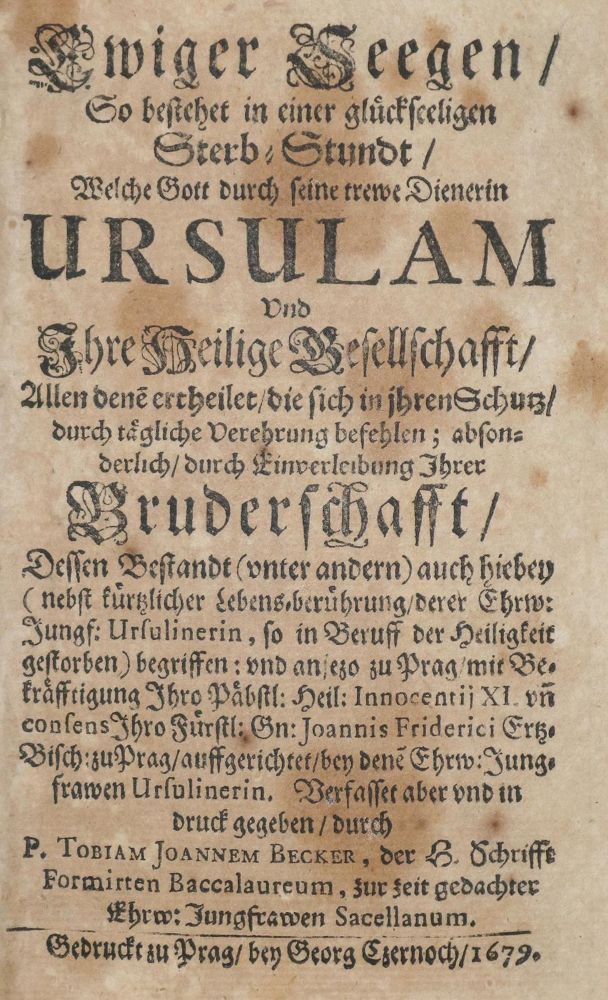 Ewiger Seegen /
So bestehet in einer glückseeligen
Sterb-Stundt /
Welche Gott durch seine trewe Dienerin
URSULAM
Vnd
Ihre Heilige Gesellschafft /
Allen denē ertheilet / die sich in jhren Schutz /
durch tägliche Verehrung befehlen ; abson-
derlich / durch Einverleibung Ihrer
Bruderschafft /
Dessen Bestandt (vnter andern) auch hiebey
( nebst kürtzlicher Lebens-berührung / derer Ehrw:
Jungf: Ursulinerin, so in Beruff der Heiligkeit
gestorben) begriffen : vnd anjezo zu Prag / mit Be-
kräfftigung Ihro Päbstl: Heil: Innocentij XI. vn̄
consens Ihro Fürstl: Gn: Joannis Friderici Ertz-
Bisch: zu Prag / auffgerichtet / bey denē Ehrw: Jung-
frawen Ursulinerin. Verfasset aber vnd in
druck gegeben / durch
P. TOBIAM JOANNEM BECKER, der H. Schrifft
Formirten Baccalaureum, zur zeit gedachter
Ehrw: Jungfrawen Sacellanum.
Gedruckt zu Prag / bey Georg Czernoch / 1679.